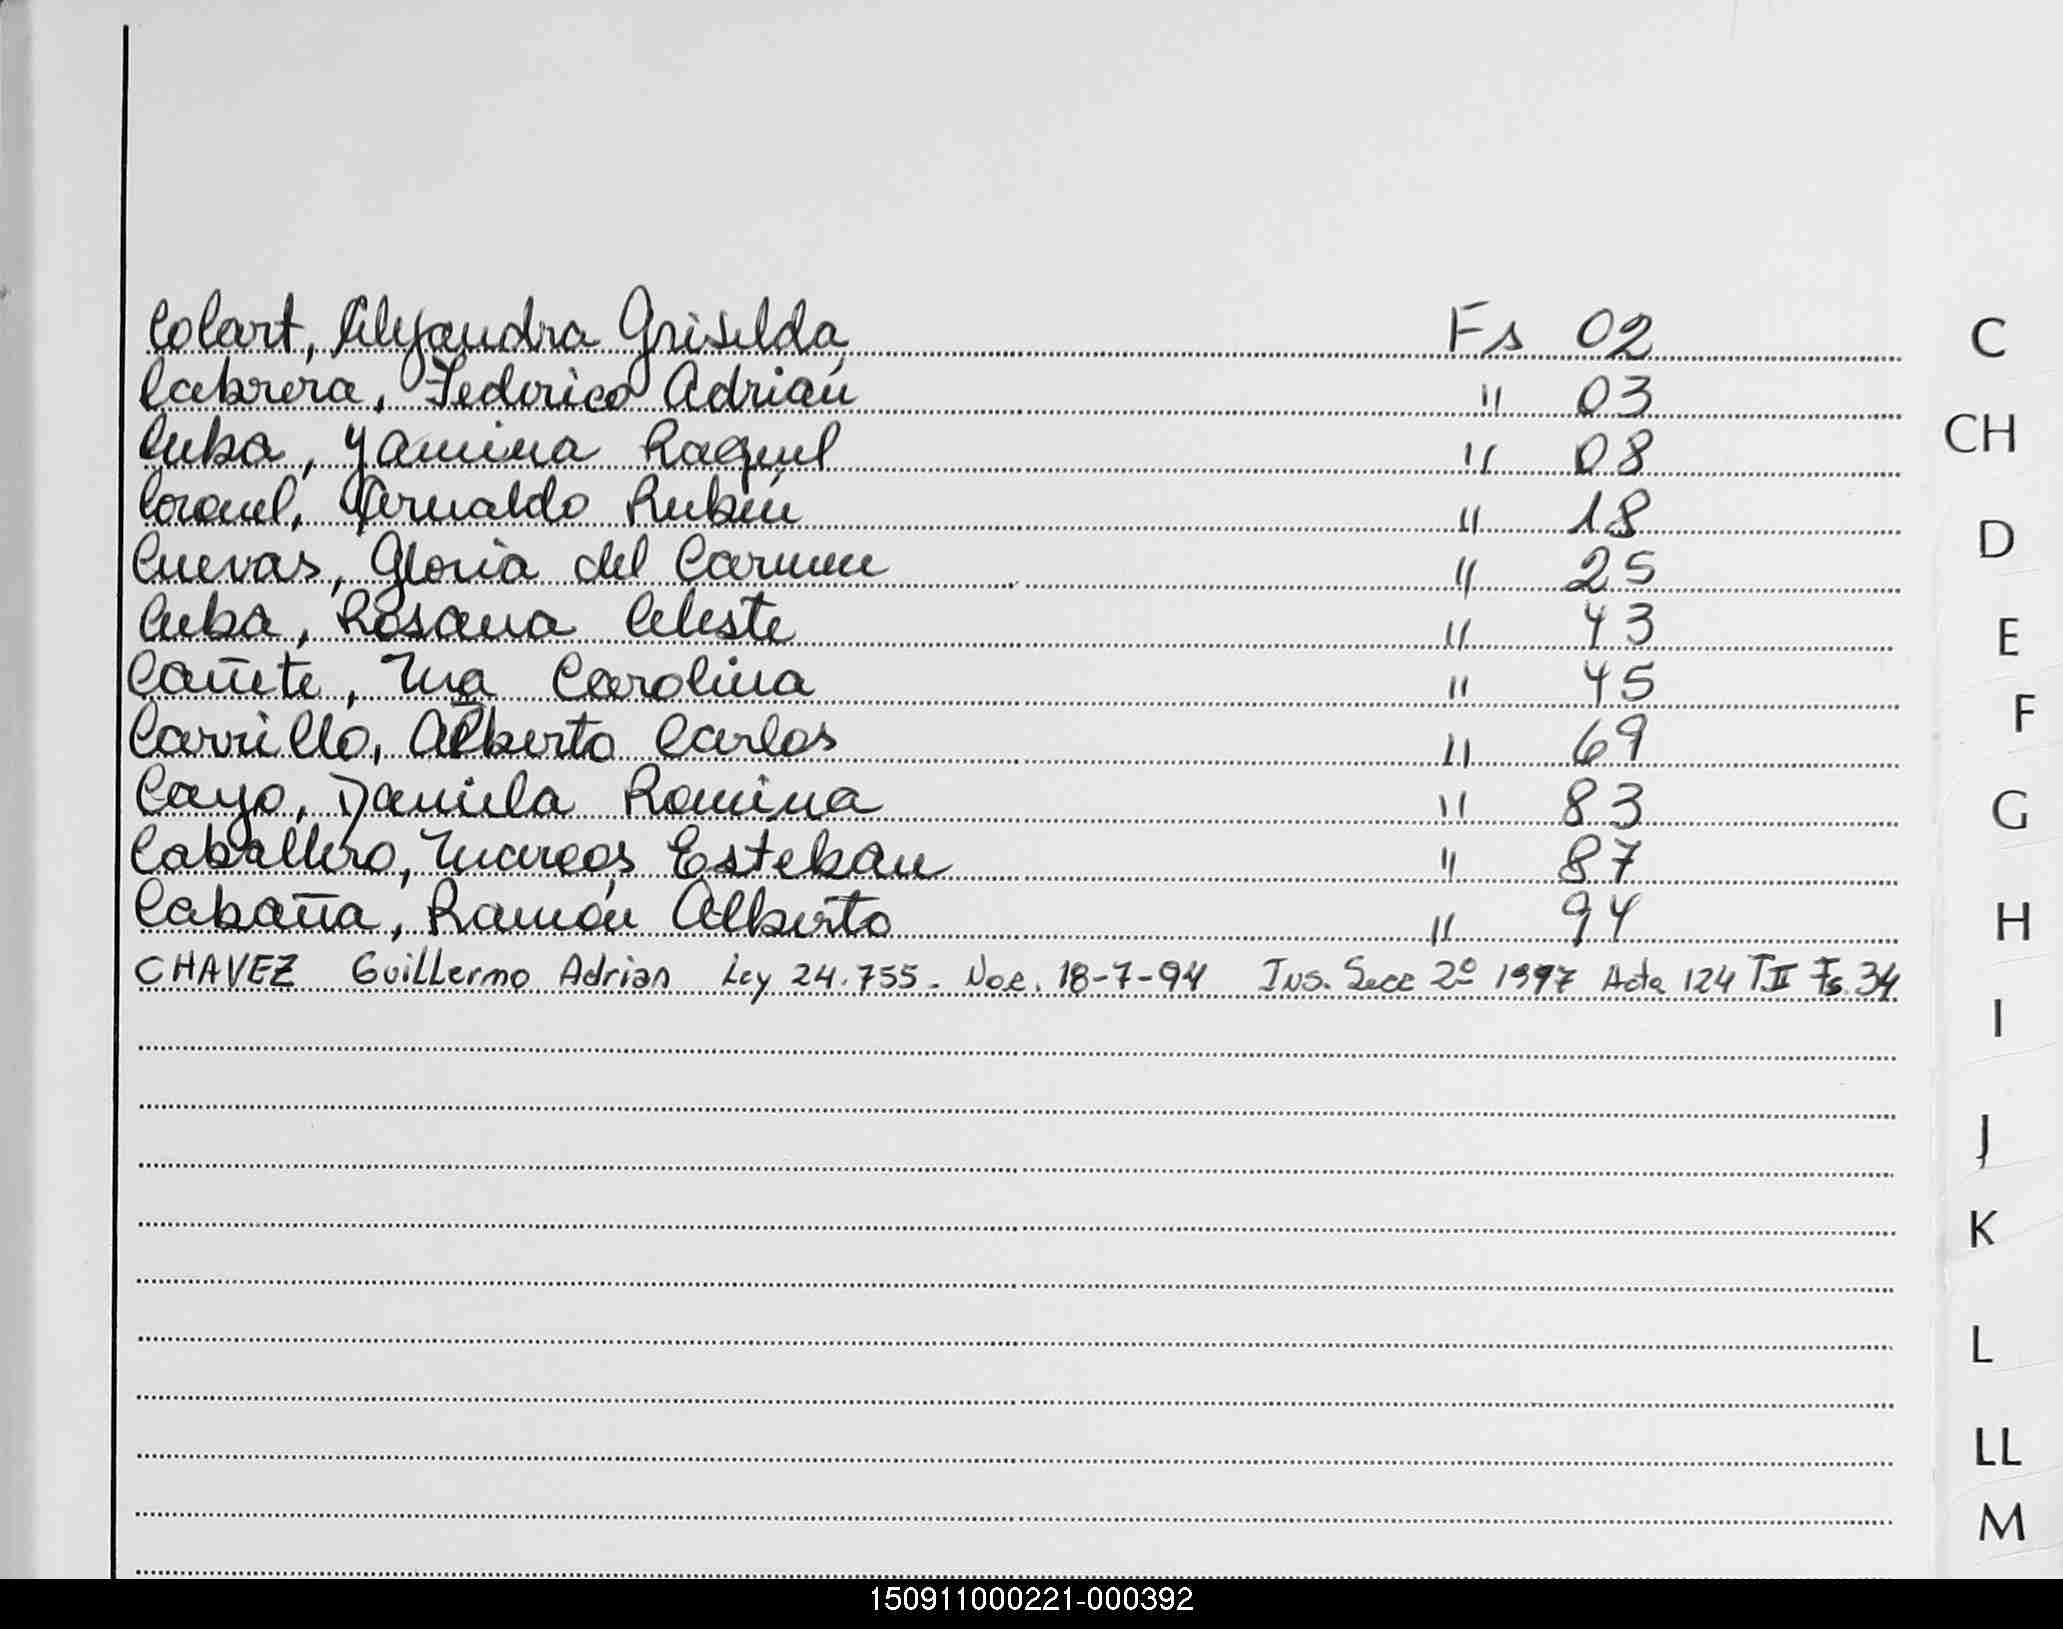 Colart, Alejandra Griselda Fs 02
Cabrera, Federico Adrián " 03
Cuba, Yamina Raquel " 08
Coronel, Arnaldo Rubén " 18
Cuevas, Gloria del Carmen " 25
Cuba, Rosana Celeste " 43
Cañete, Ma Carolina " 45
Carrillo, Alberto Carlos " 69
Cayo, Daniela Romina " 83
Caballero, Marcos Esteban " 87
Cabaña, Ramón Alberto " 94
CHAVEZ Guillermo Adrian Ley 24.755. Nac. 18-7-94 Ins. Secc 2º 1997 Acta 124 T II Fs. 34
C
CH
D
E
F
G
H
I
J
K
L
LL
M
150911000221-000392